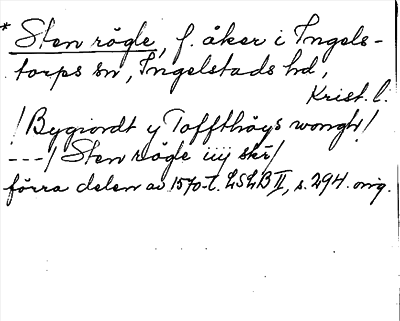 * Sten rögle, f. åker i Ingels-
torps sn, Ingelstads hd,
Krist. l.
/Bygiordt y Toffthöys wongh/
---/ Sten rögle iiij skr/
förra delen av 1570-t. LSLB II, s. 294. orig.